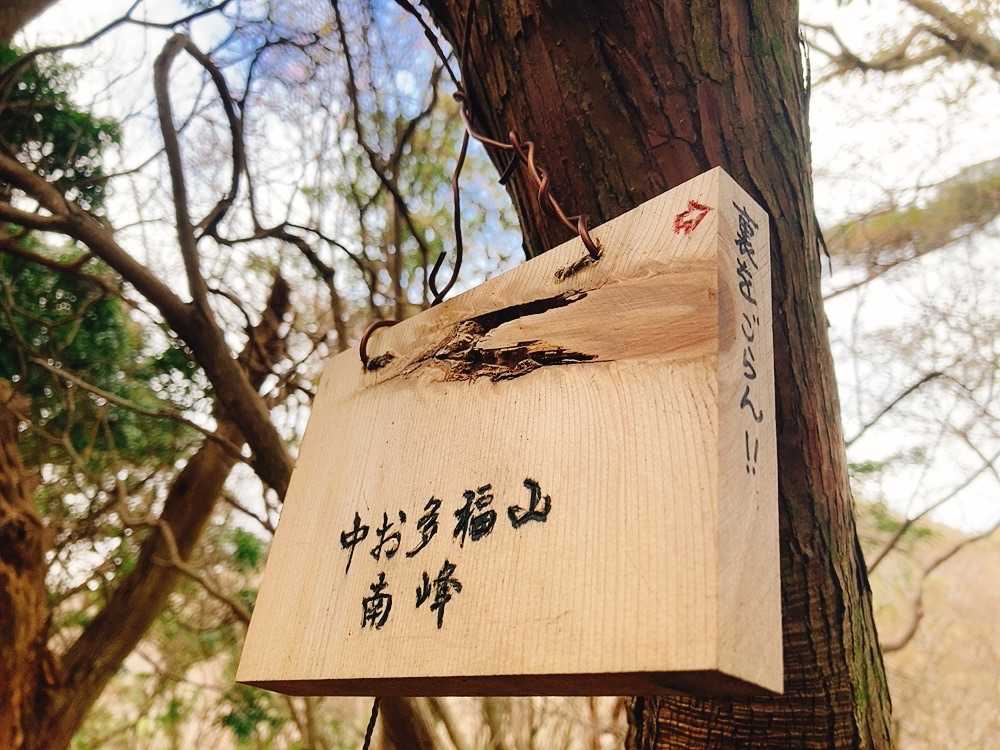 中お多福山
南峰
裏をごらん!!